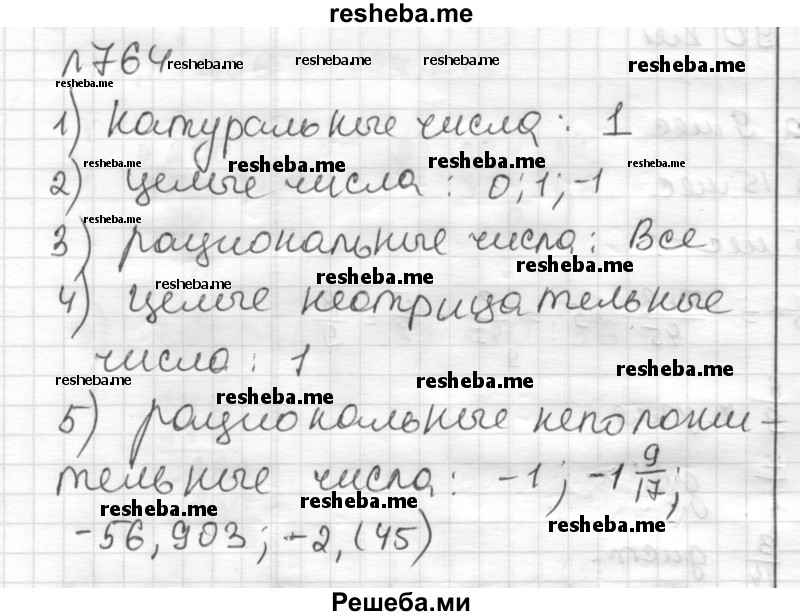 resheba.me
№764 resheba.me resheba.me resheba.me resheba.me
resheba.me
1) натуральные числа: 1
resheba.me resheba.me resheba.me resheba.me
2) целые числа: 0; 1; -1
resheba.me
3) рациональные числа: Все
resheba.me resheba.me resheba.me
4) целые неотрицательные
числа: 1
resheba.me resheba.me resheba.me resheba.me
5) рациональные неположи-
тельные числа: -1; -1 9/17;
resheba.me resheba.me resheba.me
-56,903; -2,(45)
Решеба.ми